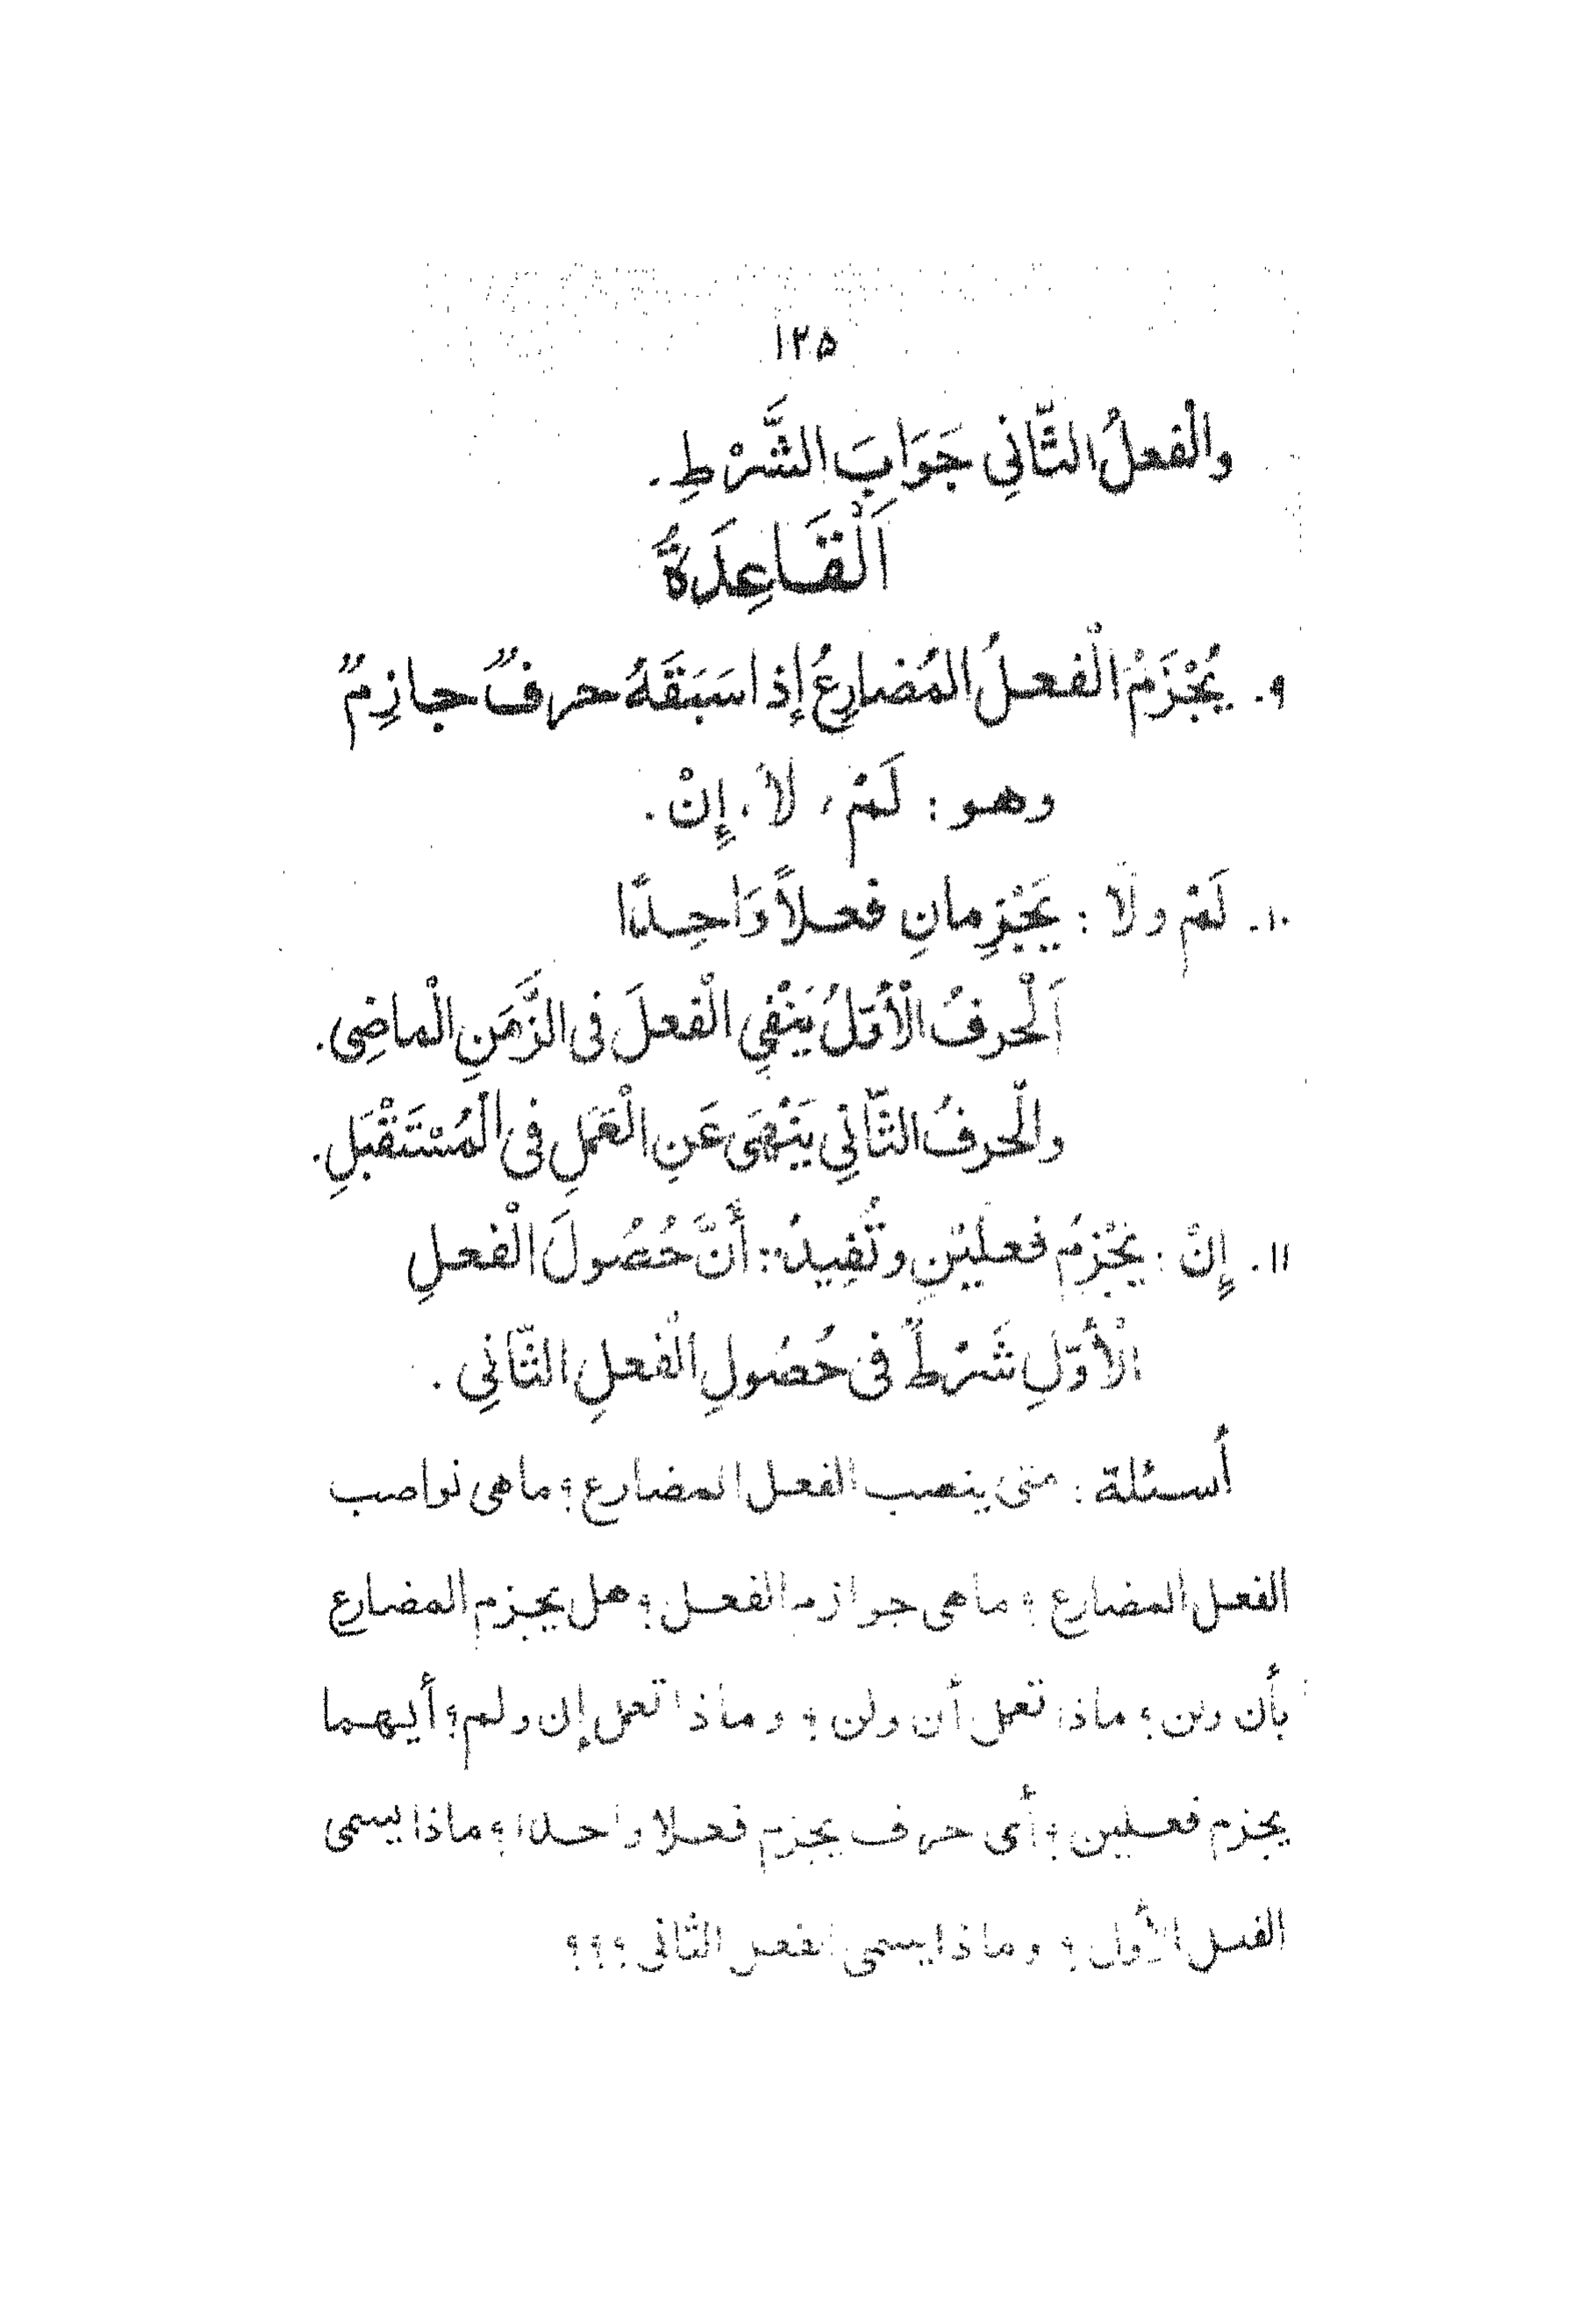 ١٢٥
والْفعلُ الثّانِي جَوَابَ الشَّرْطِ.
اَلْقَاعِدَةُ
٩. يُجْزَمُ الْفعلُ المُضارِعُ إذا سَبَقَهُ حرفٌ جازِمٌ
وهو : لَمْ، لاَ، إِنْ.
١٠. لَمْ ولاَ : يَجْزِمانِ فعلاً وَاحِدًا
اَلْحرفُ الْأَوّلُ يَنْفِي الْفعلَ فى الزَّمَنِ الْماضِى.
والْحرفُ الثّانِي يَنْهَى عَنِ الْعَمَلِ فى الْمُسْتَقْبَلِ.
١١. إِنْ : يَجْزمُ فعلَيْنِ وتُفِيدُ: أَنَّ حُصُولَ الْفعلِ
الْأَوّلِ شَرْطٌ فى حُصُولِ الْفعلِ الثّانِي .
أسئلة : متى ينصب الفعل المضارع؟ ماهى نواصب
الفعل المضارع؟ ماهى جوازم الفعل؟ هل يجزم المضارع
بأن ولن؟ ماذا تعمل أن ولن؟ وماذا تعمل إن ولم؟ أيهما
يجزم فعلين؟ أى حرف يجزم فعلا واحدا؟ ماذا يسمى
الفعل الأول؟ وماذا يسمى الفعل الثانى؟؟؟